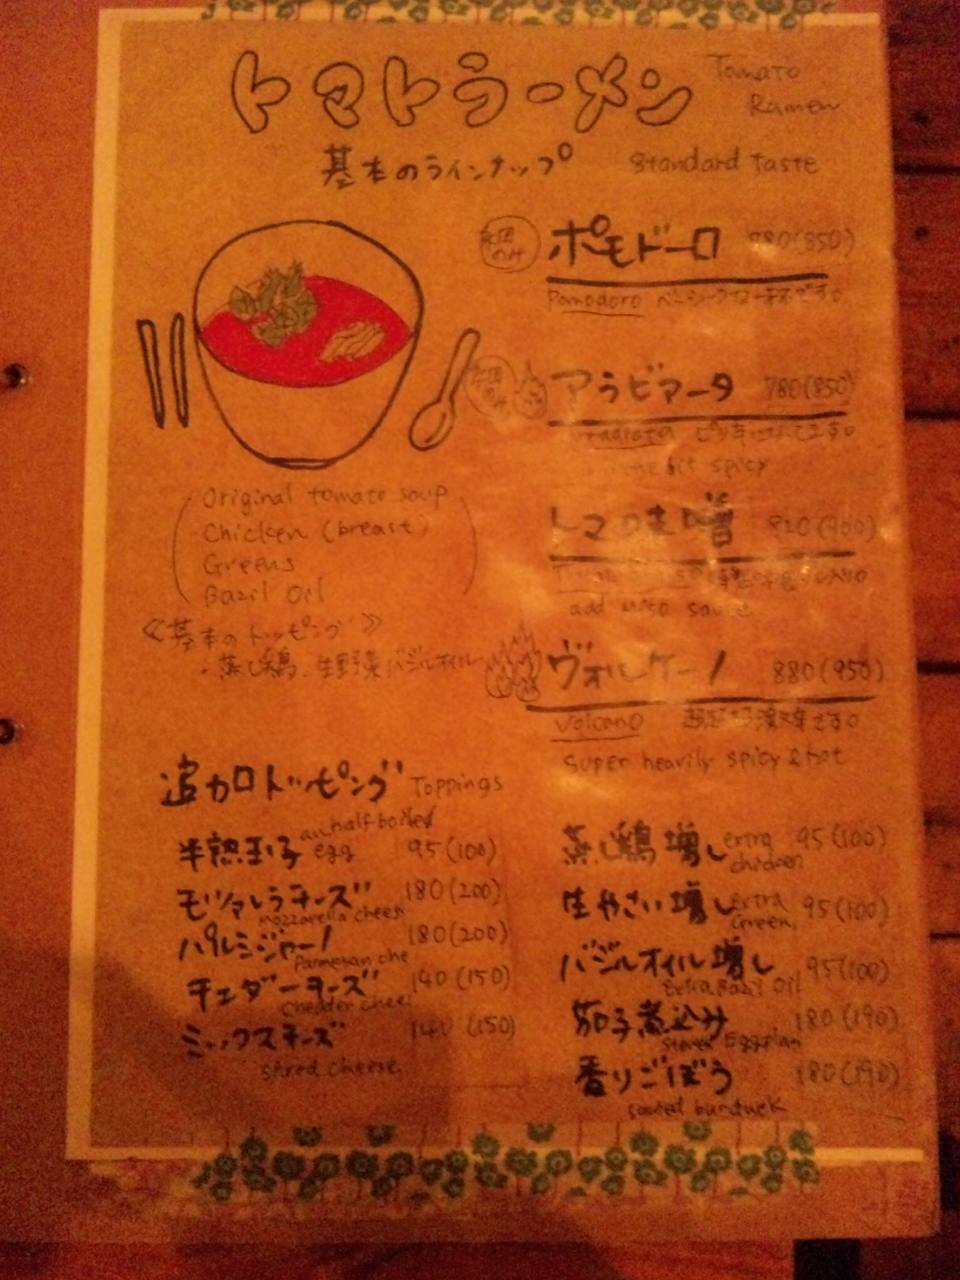 トマトラーメン Tomato Ramen
基本のラインナップ Standard Taste
ポモドーロ 780(850)
Pomodoro ベーシックな一杯です。
アラビアータ 780(850)
ピリ辛
bit spicy
トマの味噌 820(900)
add miso sauce
ヴォルケーノ 880(950)
Volcano
Super heavily spicy & hot
Original tomato soup
Chicken (breast)
Greens
Bazil Oil
《基本のトッピング》
・蒸し鶏、生野菜、バジルオイル
追加トッピング Toppings
半熟玉子 an half-boiled egg 95(100)
モッツァレラチーズ 180(200)
mozzarella chees
パルミジャーノ 180(200)
Parmesan che
チェダーチーズ 140(150)
chedder chees
ミックスチーズ 140(150)
cheese
蒸し鶏増し extra chicken 95(100)
生やさい増し extra Green 95(100)
バジルオイル増し 95(100)
Extra Bazil Oil
茄子煮込み 180(190)
Eggplan
香りごぼう 180(190)